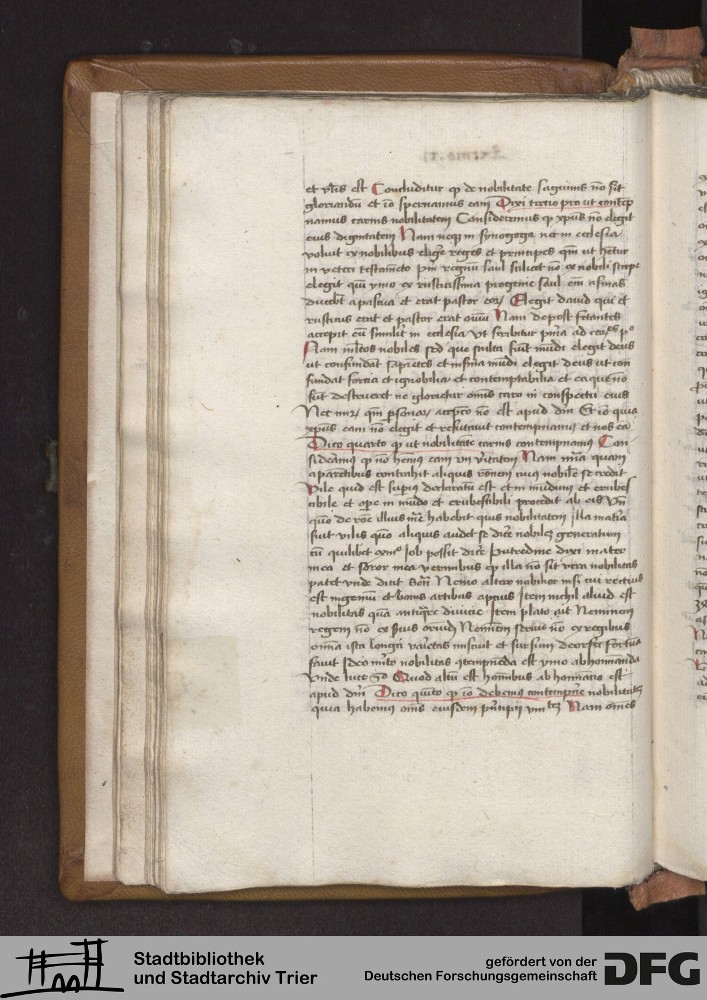 et vilis est Concluditur qp de nobilitate sagwinis no sit
gloriandu et io spernamus eam Dixi tertio pro ut contep
namus carnis nobilitatem Consideremus qp xpus no elegit
eius dignitatem Nam neqz in synogoga nec in ecclesia
voluit ex nobilibus elige reges et principes qm ut hetur
in veteri testameto pm regnu saul scilicet no ex nobili stirpe
elegit qui ymo ex rusticissima progenie saul em asinas
ducebt a pascua et erat pastor eoz Elegit dauid qui et
rusticus erat et pastor erat ouiu Nam de post fetantes
accepit eu similit in ecclesia vt scribitur pma ad cor po
Nam mltos nobiles sed que stulta sunt mudi elegit deus
ut confundat sapietes et infirma mudi elegit deus ut con
fundat fortia et ignobilia et contemptabilia et ea que no
sut destrueret ne glorietur omis caro in conspectu eius
Nec mir qm psonar acceptio no est apud dm Et io quia
xpus eam no elegit et refutauit contempnamus et nos ea
Dico quarto qp ut nobilitate carnis contempnamus Con
sideamus qp no hemus eam in vitatem Nam ma quam
a parentibus contrahit aliquis ronem cuius nobile se credit
Vile quid est supius declaratu est et in mundum et erubes
cibile et ope in mudo et erubescibili procedit ab eis Vn
quo de roe illius me habebit quis nobilitatem illa matia
sint vilis quo aliquis audet se dice nobilez generatum
cu quilibet cum Iob possit dice Putredine dixi mater
mea et soror mea vermibus qp illa no sit vera nobilitas
patet vnde dicit Sen Nemo altero nobilior nisi cui rectius
est ingeniu et bonis artibus aptius Item nichil aliud est
nobilitas qua antique diuicie Item plato ait Neminem
regem no ex suis oriud Neminem seruu no ex regibus
omia ista longa varietas miscuit et sursum deorsu fortuna
fauit Ideo mlto nobilitas contempneda est ymo abhominanda
Vnde luce Quod altu est hominibus abhominatio est
apud dm Dico quito qp io debemus contempne nobilitatez
quia habemus omes eiusdem pncipii vnitatez Nam omes
Stadtbibliothek
und Stadtarchiv Trier
gefördert von der
Deutschen Forschungsgemeinschaft
DFG